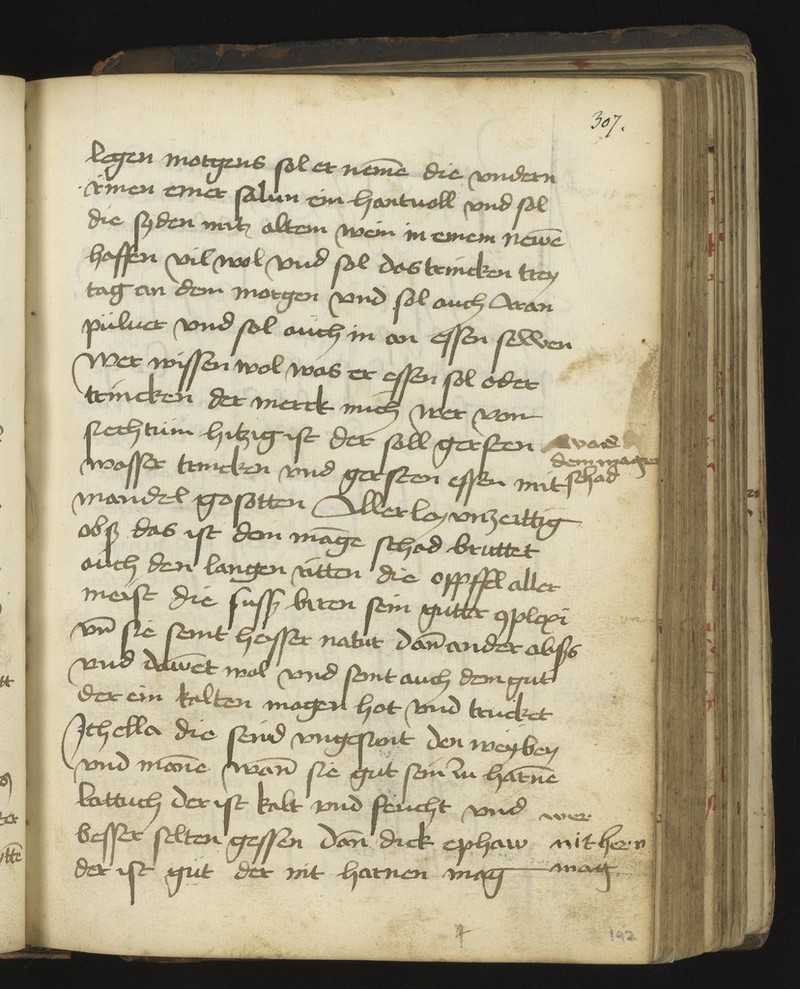 307.
legen morgens sol er nemē die vndern
rinen einer salun ein hantuoll vnd sol
die syden mitz altem wein in einem newē
haffen vil wol vnd sol das trincken trey
tag an dem morgen vnd sol auch dran
puluer vnd sol auch in an essen selben
Wer wissen wol was er essen sol oder
trincken der merck mich wer von
siechtum hitzig ist der soll gersten
wasser trincken vnd gersten essen mit
mandel gesotten Aller ley vnzeittig
obß das ist dem mage schad bruttet
auch den langen ritten die opffel aller
meist die suss biren sein gutter 9plexi
vn̄ sie seint heisser natur dan̄ ander obß
vnd dawēt wol vnd sent auch dem gut
der ein kalten magen hot vnd trucket
die seind vngesunt den weyben
vnd manē wan̄ sie gut sein zu harnē
lattuch der ist kalt vnd feucht vnd
besser selten gessen dan̄ dick ephaw
der ist gut der nit harnen mag
dem mage
schad
wer
nit hern
mag
192